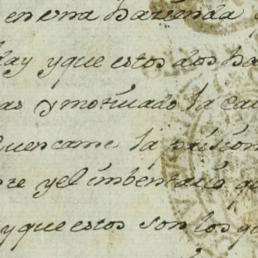 en una hazienda
hay y que estos dos ha
as y motivado la ca
Cuencame la
re y el imbentario q
y que estos son los q